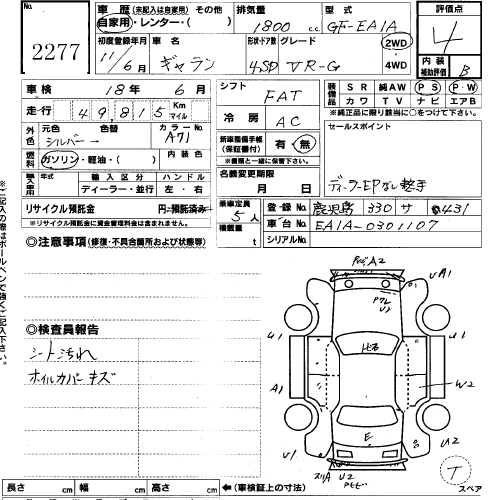 No.
2277
車歴 (未記入は自家用) その他
自家用・レンター・( )
排気量
1800 cc
型式
GF-EA1A
評価点
4
初度登録年月
11/6月
車名
ギャラン
形状・ドア数
4SD
グレード
VR-G
2WD
4WD
内装
補助評価
B
車検
18年 6月
走行
49815 Km
マイル
シフト
FAT
装備品
SR 純AW PS PW
カワ TV ナビ エアB
※純正品に限り該当に○をつけて下さい。
外色
元色
シルバー
色替
→
カラーNo.
A71
冷房
AC
セールスポイント
燃料
ガソリン・軽油・( )
内装色
新車整備手帳
(保証書付)
有・無
※書類と一緒に保管下さい。
輸入車
年式
輸入区分
ディーラー・並行
ハンドル
左・右
名義変更期限
月 日
リサイクル預託金
円 預託済み
※リサイクル預託金に資金管理料金は含まれません。
乗車定員
5人
積載量
t
登録No.
鹿児島 330 サ 431
車台No.
EA1A-0301107
シリアルNo.
◎注意事項(修復・不具合箇所および状態等)
◎検査員報告
シート汚れ
ホイルカバーキズ
A2
UA1
U2
U1
U1
A1
W2
E
U1
U2
U2
T
スペア
長さ cm 幅 cm 高さ cm ←(車検証上の寸法)
※ご記入の際はボールペンで強くご記入下さい。